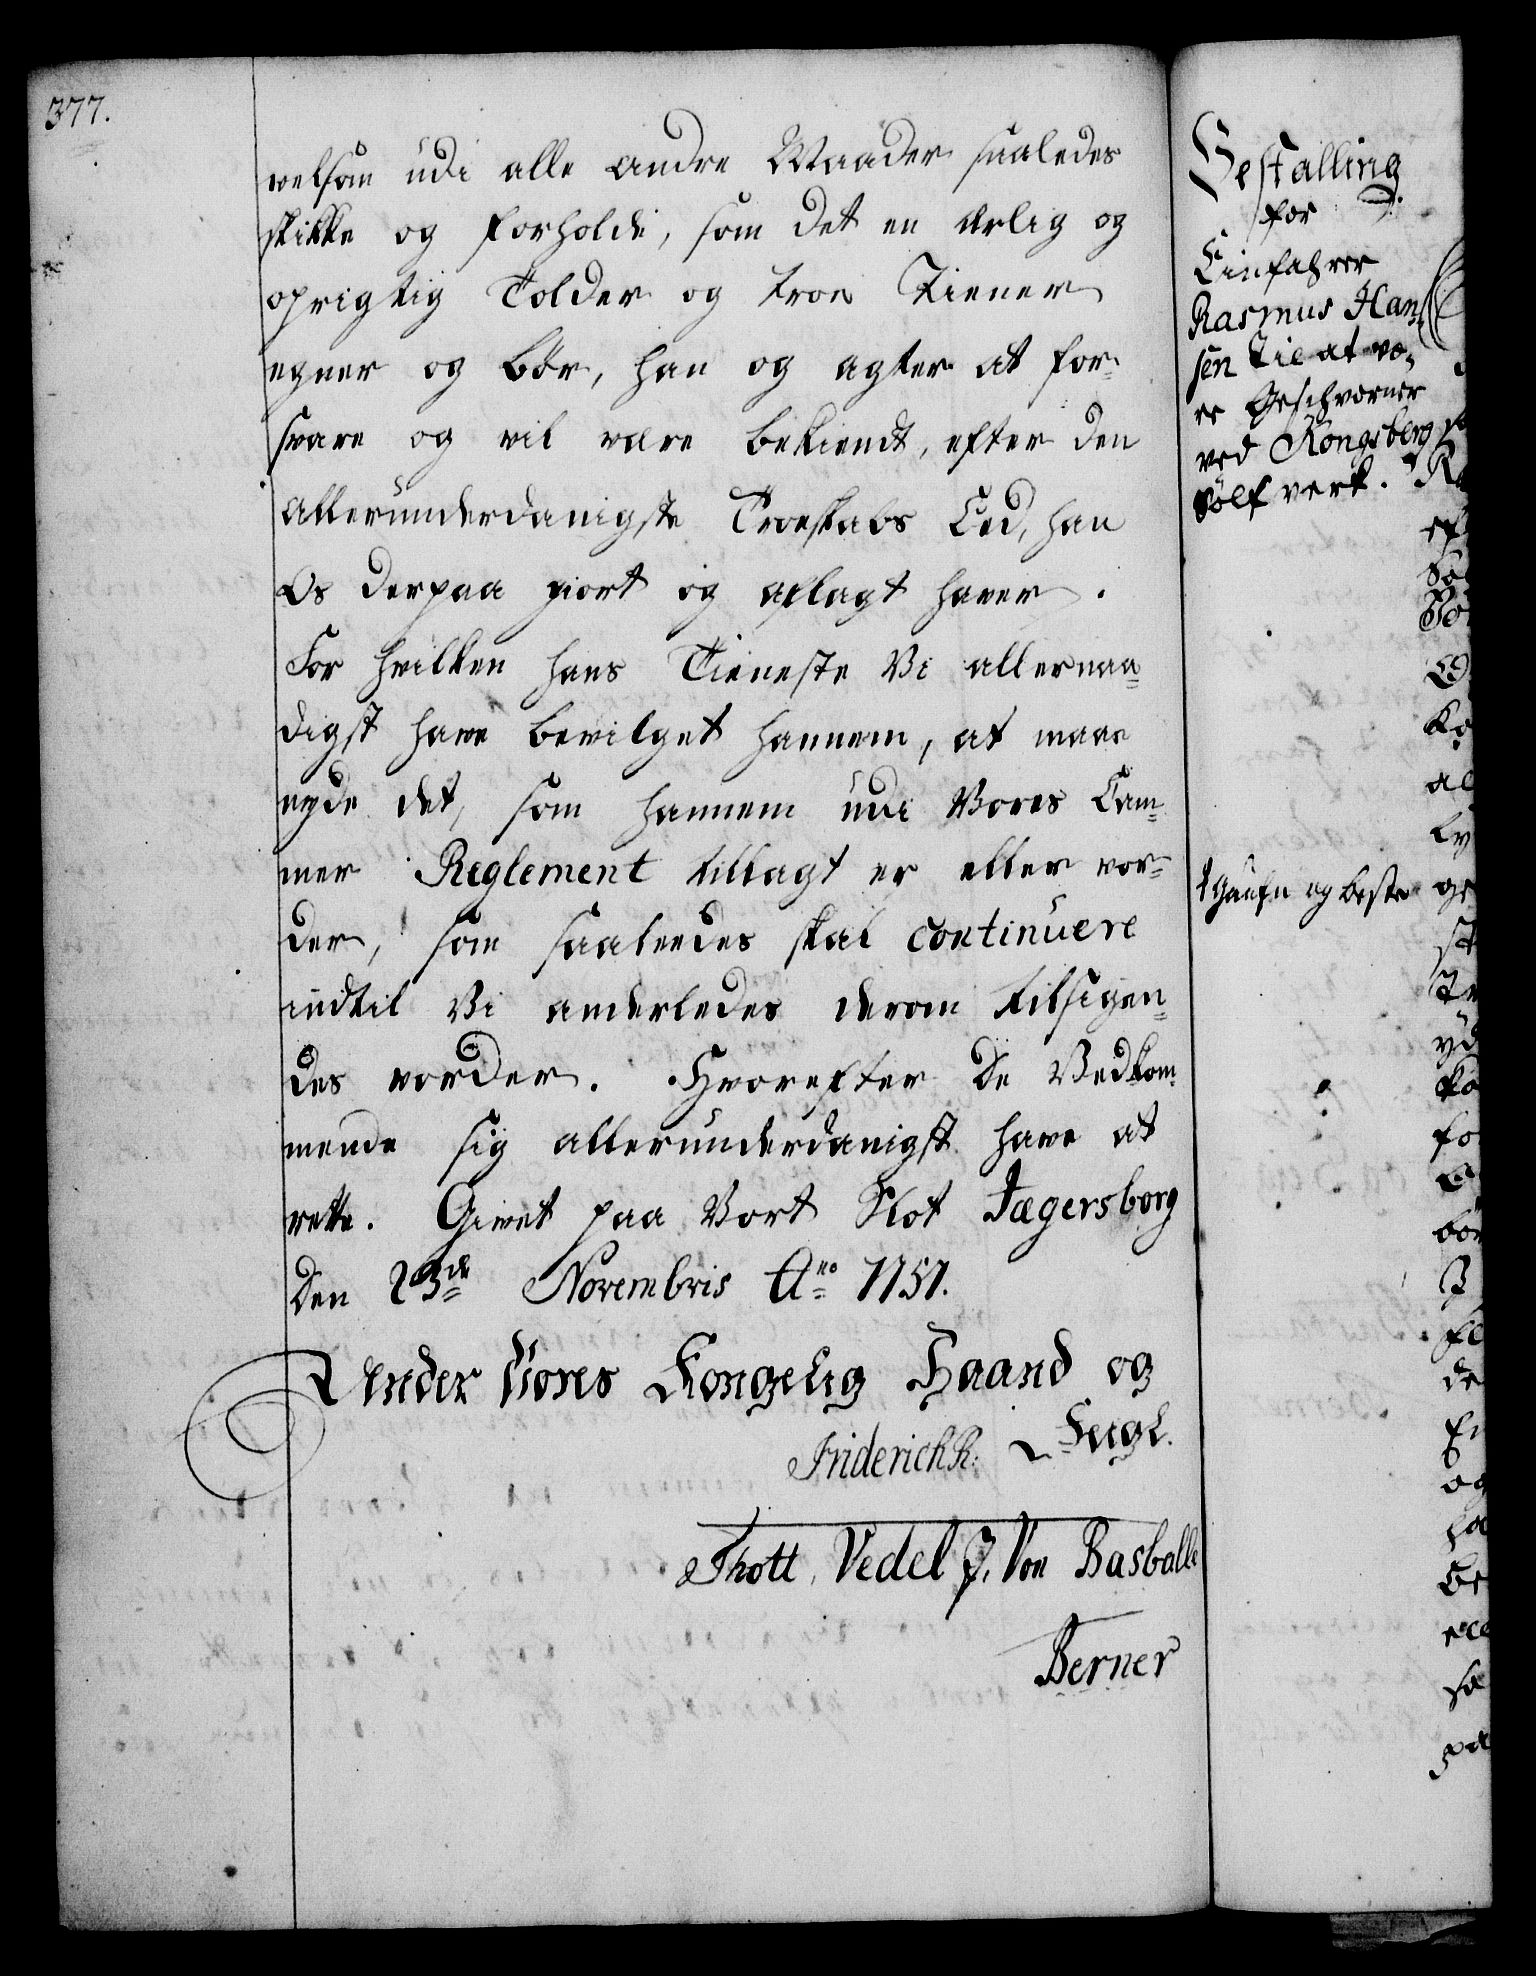 377.
velsom udi alle andre Maader saaledes
skikke og forholde, som det en ærlig og
oprigtig Tolder og troe Tiener
egner og bör, han og agter at for¬
svare og vil være bekiendt, efter den
allerunderdanigste Troeskabs Eed, han
Os derpaa giort og aflagt haver.
For hvilken hans Tieneste Vi allernaa¬
digst have bevilget hannem, at maae
nyde det, som hannem udi Vores Cam¬
mer Reglement tillagt er eller vor¬
der, som saaleedes skal continuere
indtil Vi anderledes derom tilsigen¬
des vorder. Hvorefter De Vedkom¬
mende sig allerunderdanigst have at
rette. Givet paa Vort Slot Jægersborg
den 23de Novembris Ao 1757.
Under Vores Kongelig Haand og
Friderich R. Seigl.
Thott, Vedel J. Von Basballe
Berner
Bestalling
for
Einfahrer
Rasmus Han¬
sen til at væ¬
re Geschvorner
ved Kongsberg
Sölfverk.
og beste